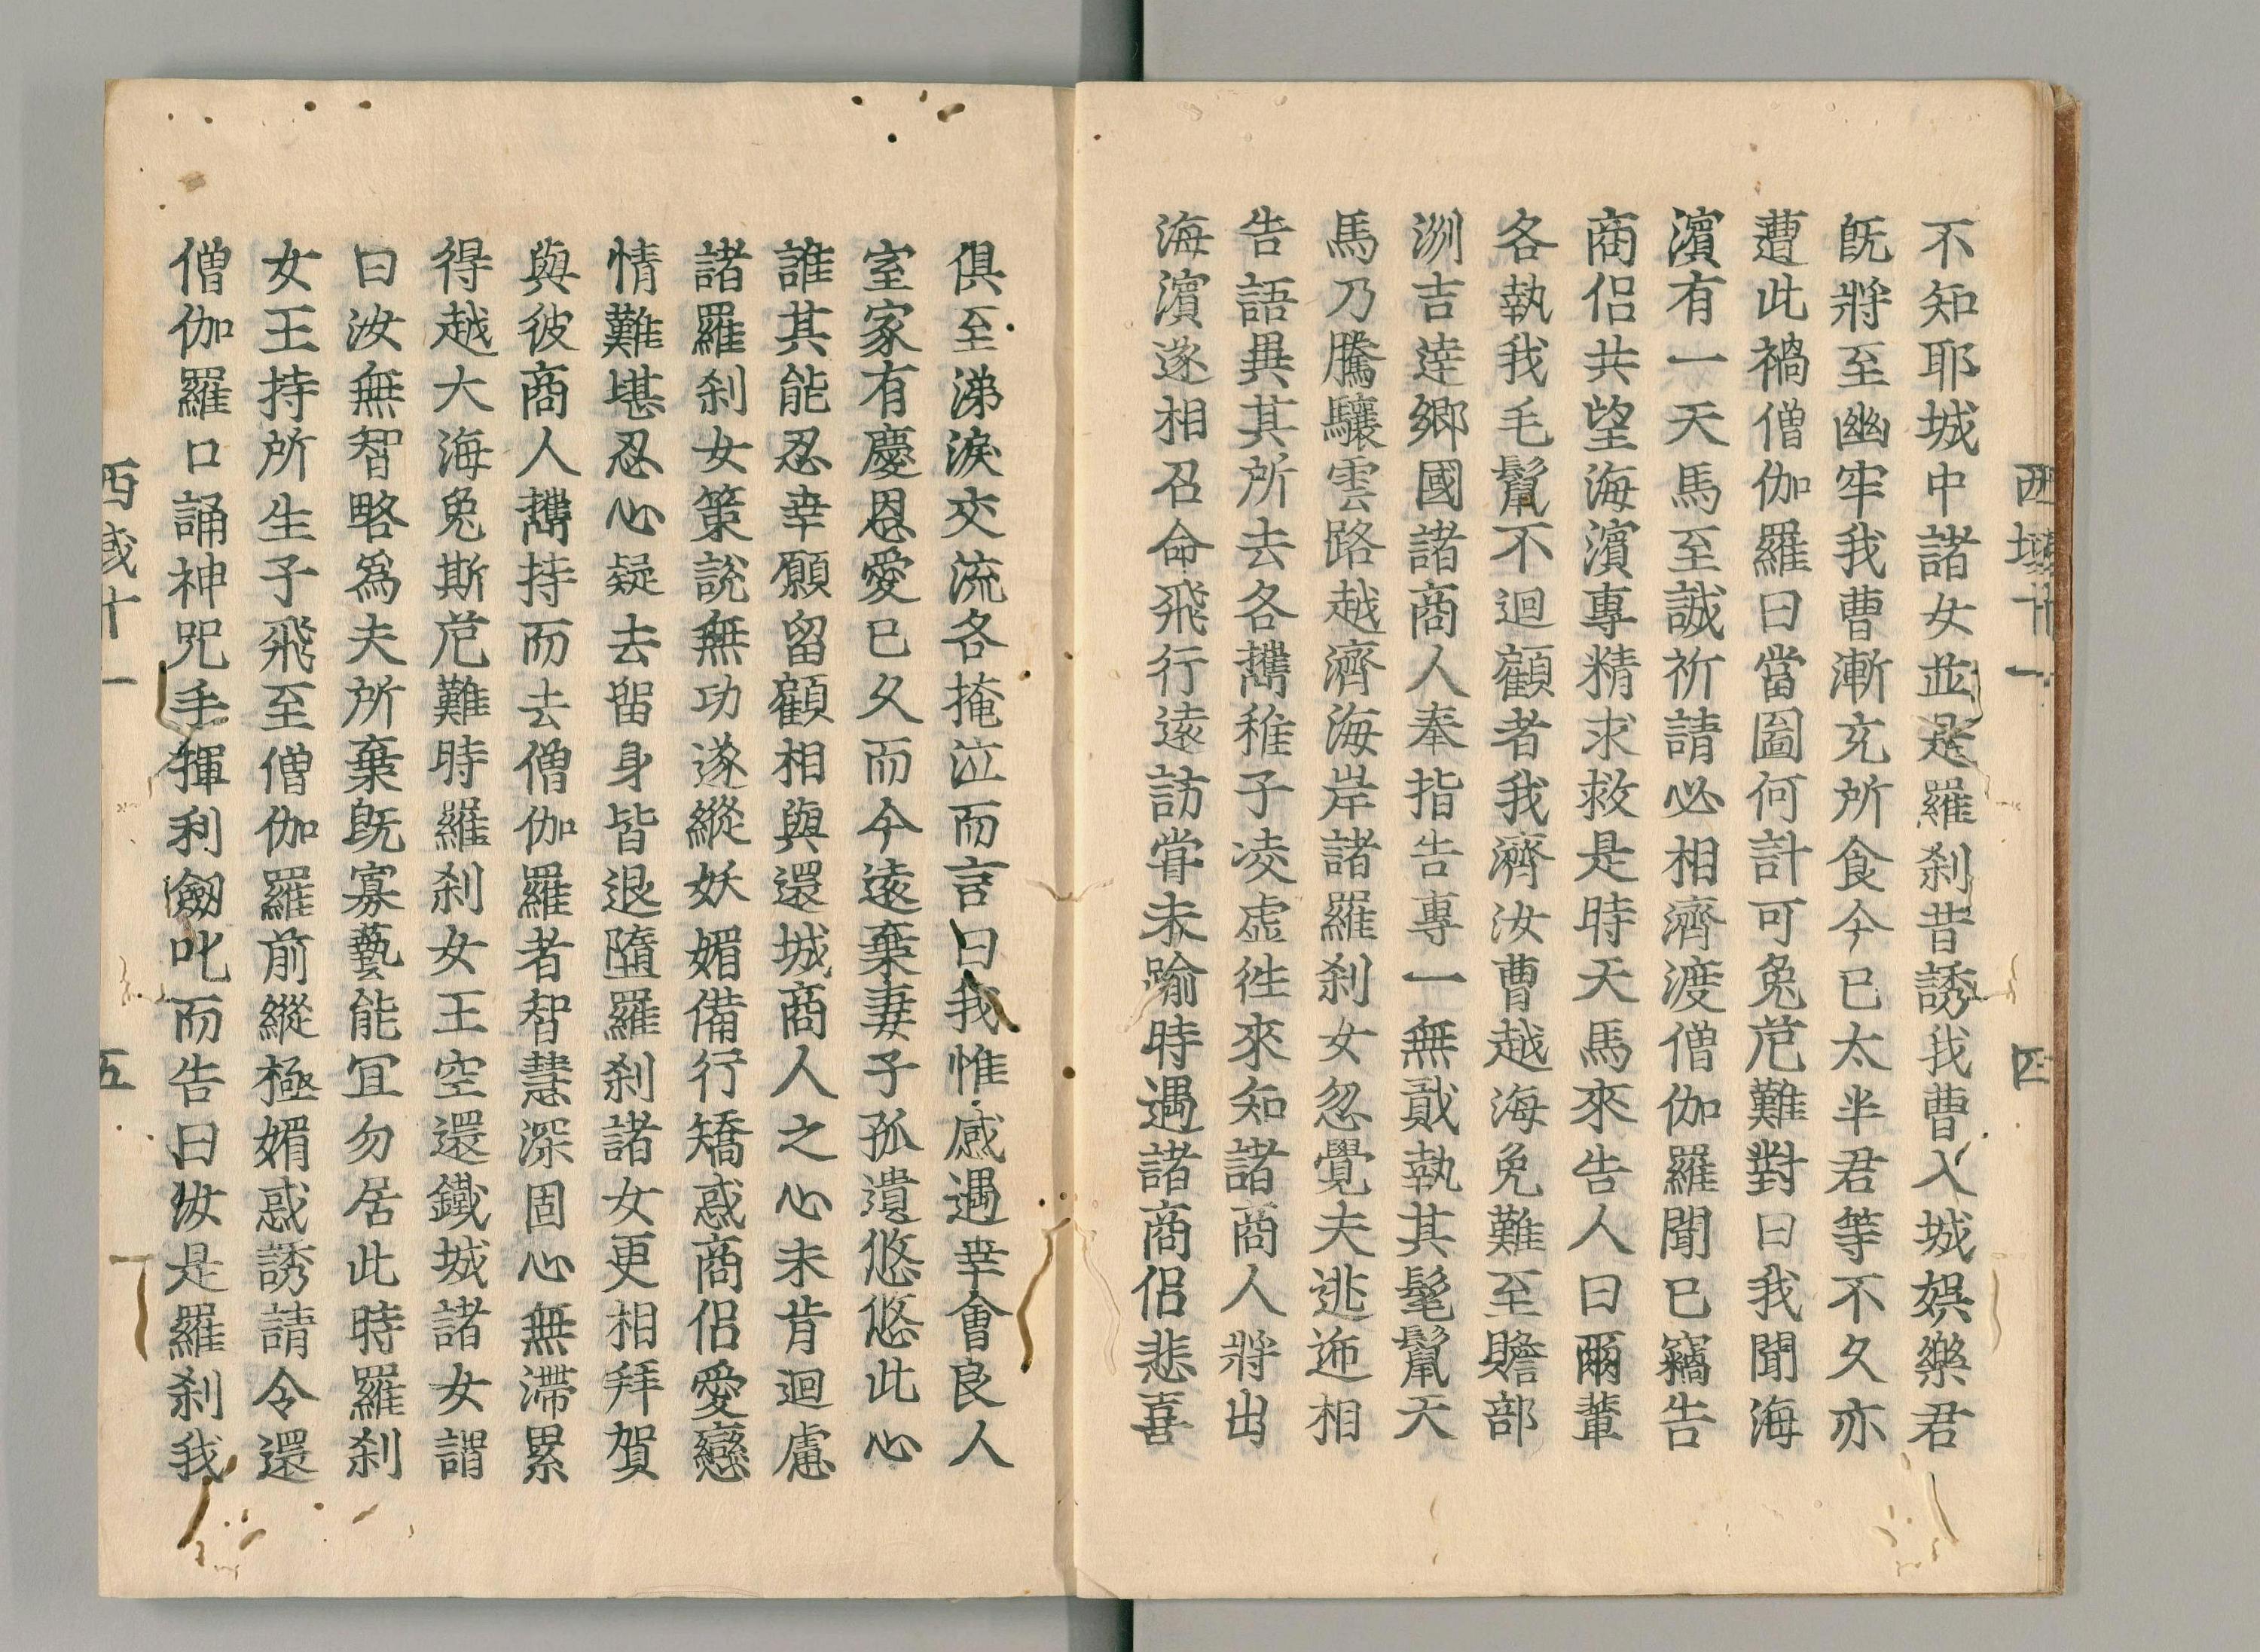 西域十一 四
不知耶城中諸女並是羅刹昔誘我曹入城娯樂君
旣將至幽牢我曹漸充所食今已太半君等不久亦
遭此禍僧伽羅曰當圖何計可免危難對曰我聞海
濱有一天馬至誠祈請必相濟渡僧伽羅聞已竊告
商侶共望海濱專精求救是時天馬來告人曰爾輩
各執我毛鬣不迴顧者我濟汝曹越海免難至贍部
洲吉達鄉國諸商人奉指告專一無貳執其髦鬣天
馬乃騰驤雲路越濟海岸諸羅刹女忽覺夫逃遞相
告語異其所去各攜稚子凌虛往來知諸商人將出
海濱遂相召命飛行遠訪嘗未踰時遇諸商侶悲喜
俱至涕淚交流各掩泣而言曰我惟感遇幸會良人
室家有慶恩愛已久而今遠棄妻子孤遺悠悠此心
誰其能忍幸願留顧相與還城商人之心未肯迴慮
諸羅刹女策說無功遂縱妖媚備行矯惑商侶愛戀
情難堪忍心疑去留身皆退墮羅刹諸女更相拜賀
與彼商人攜持而去僧伽羅者智慧深固心無滯累
得越大海免斯危難時羅刹女王空還鐵城諸女謂
曰汝無智略爲夫所棄旣寡藝能宜勿居此時羅刹
女王持所生子飛至僧伽羅前縱極媚惑誘請令還
僧伽羅口誦神呪手揮利劒叱而告曰汝是羅刹我
西域十一 五